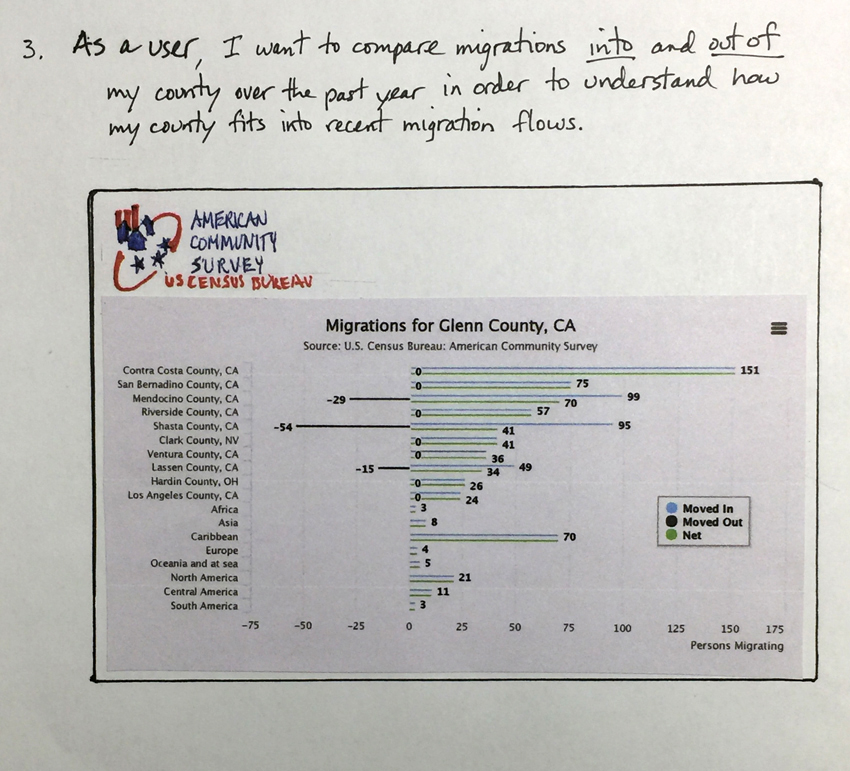 3. As a user, I want to compare migrations into and out of
my county over the past year in order to understand how
my county fits into recent migration flows.
AMERICAN
COMMUNITY
SURVEY
US CENSUS BUREAU
Migrations for Glenn County, CA
Source: U.S. Census Bureau: American Community Survey
Contra Costa County, CA 0 151
San Bernadino County, CA 0 75
Mendocino County, CA -29 99 70
Riverside County, CA 0 57
Shasta County, CA -54 95 41
Clark County, NV 0 41
Ventura County, CA 0 36
Lassen County, CA -15 49 34
Hardin County, OH 0 26
Los Angeles County, CA 0 24
Africa 3
Asia 8
Caribbean 70
Europe 4
Oceania and at sea 5
North America 21
Central America 11
South America 3
Moved In
Moved Out
Net
-75 -50 -25 0 25 50 75 100 125 150 175
Persons Migrating